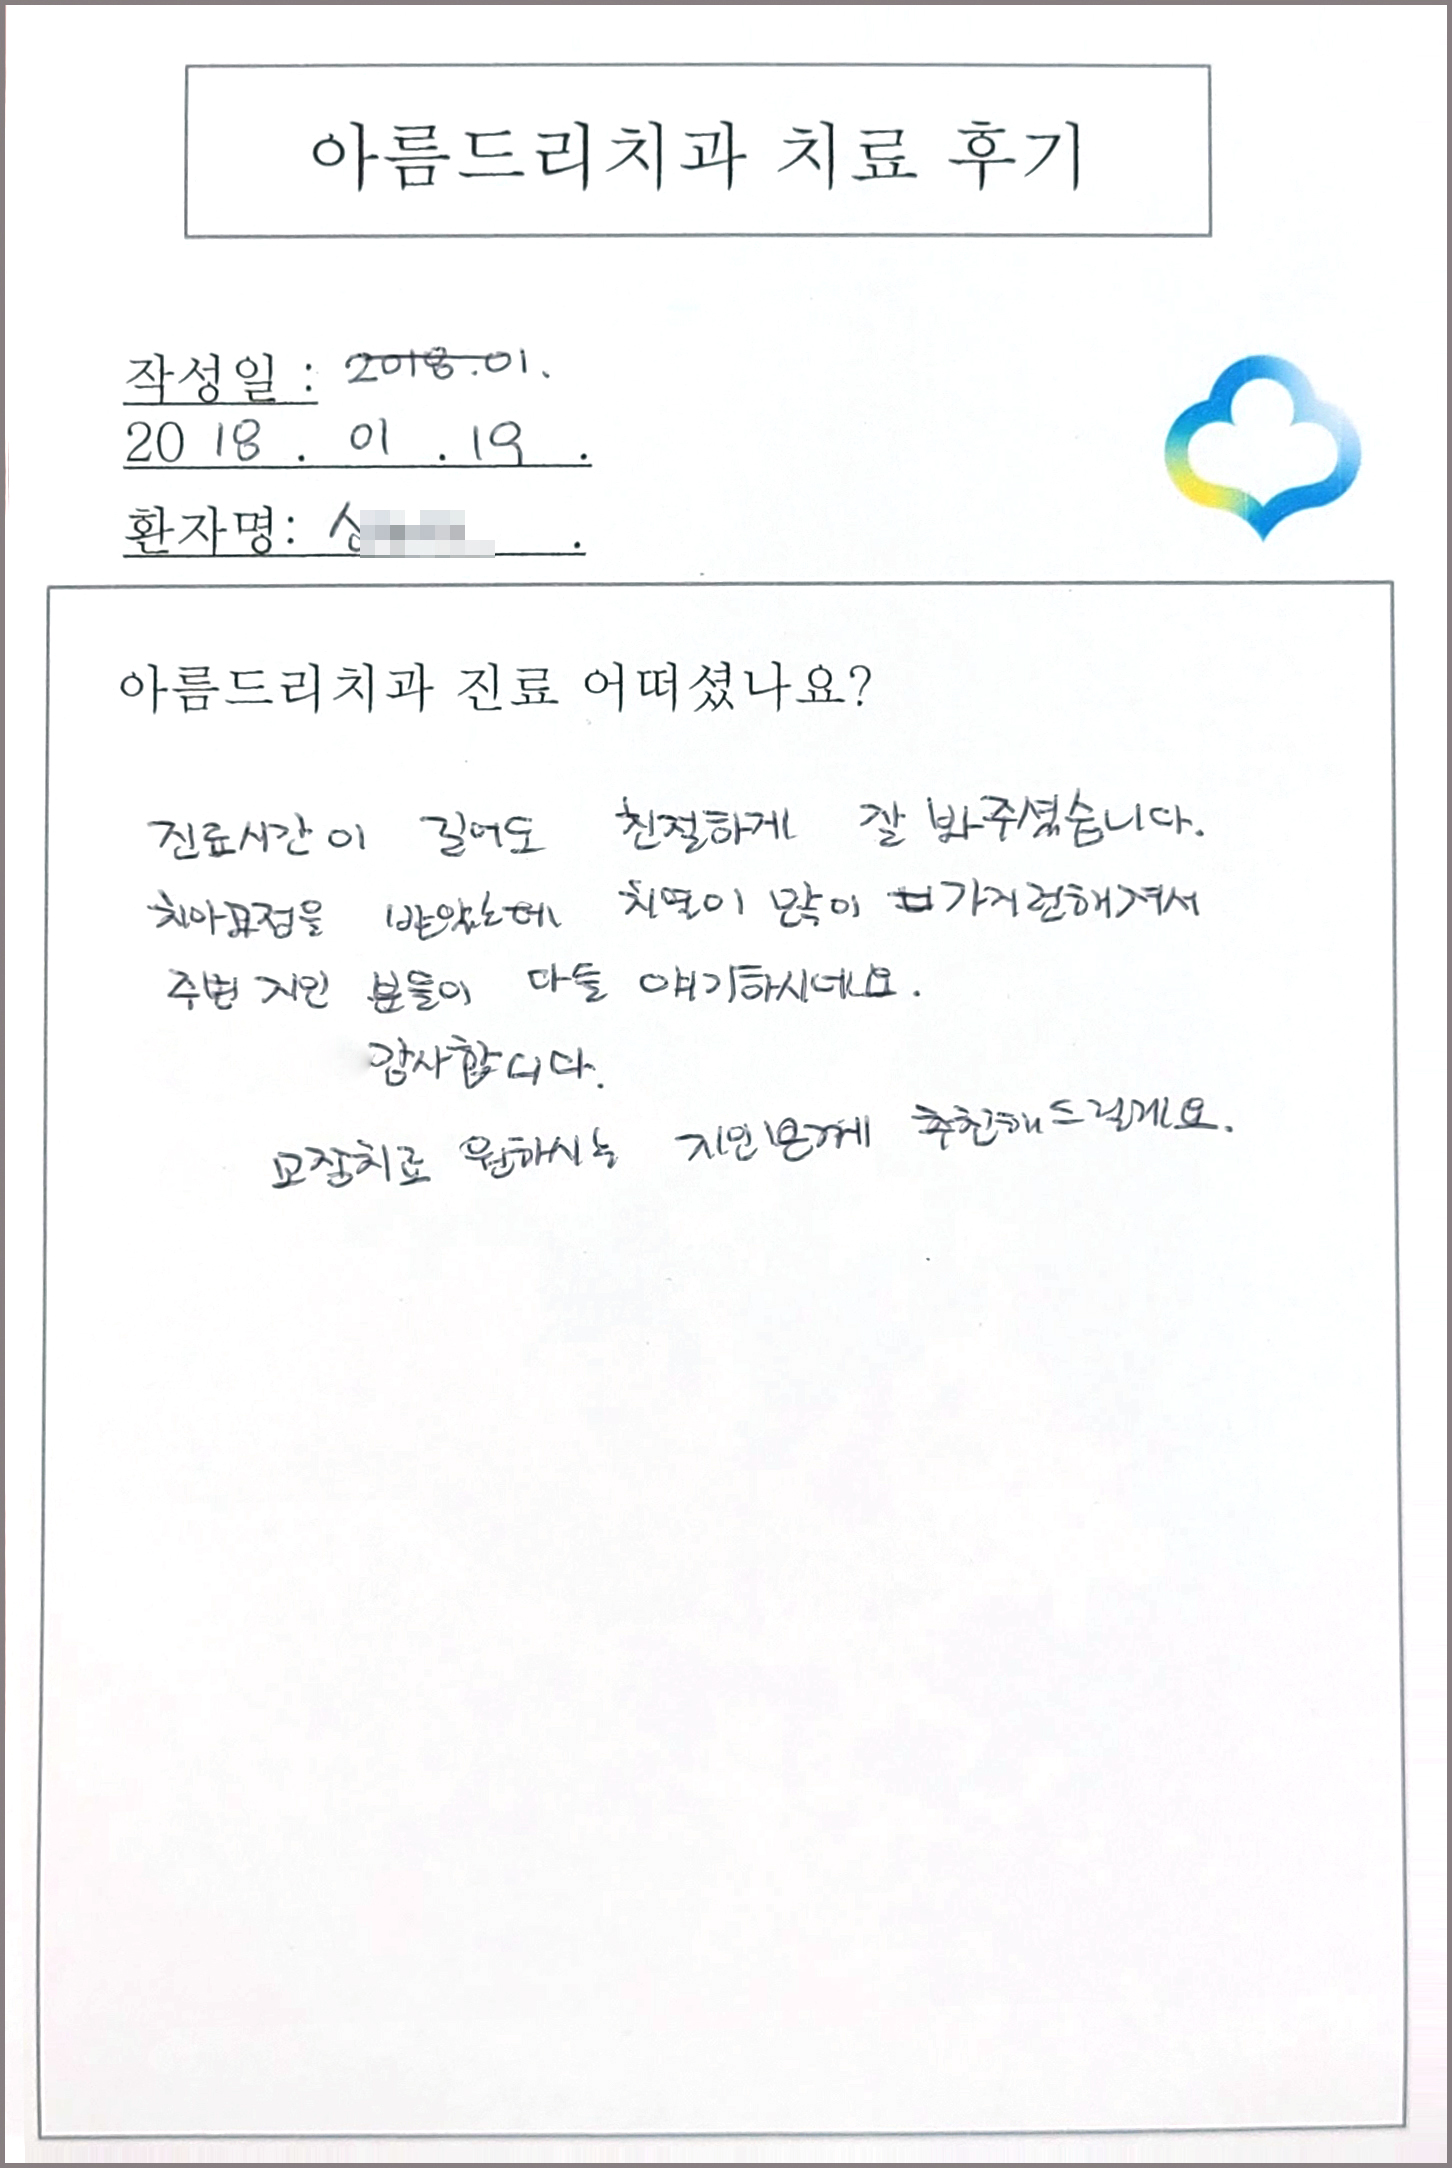 아름드리치과 치료 후기
작성일 : 2018.01.
2018 . 01 . 19 .
환자명: .
아름드리치과 진료 어떠셨나요?
진료시간이 길어도 친절하게 잘 봐주셨습니다.
치아교정을 받았는데 치열이 많이 가지런해져서
주변 지인 분들이 다들 얘기하시네요.
감사합니다.
교정치료 원하시는 지인분께 추천해드릴게요.